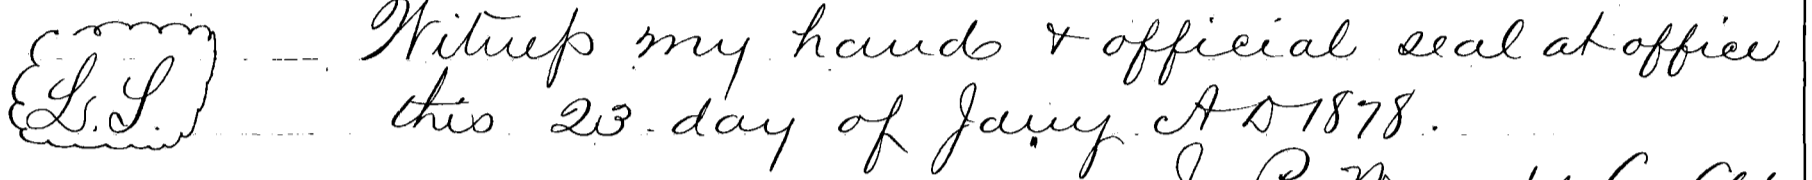 Witness my hand & official seal at office
L.S. this 23 day of Jany A D 1878.